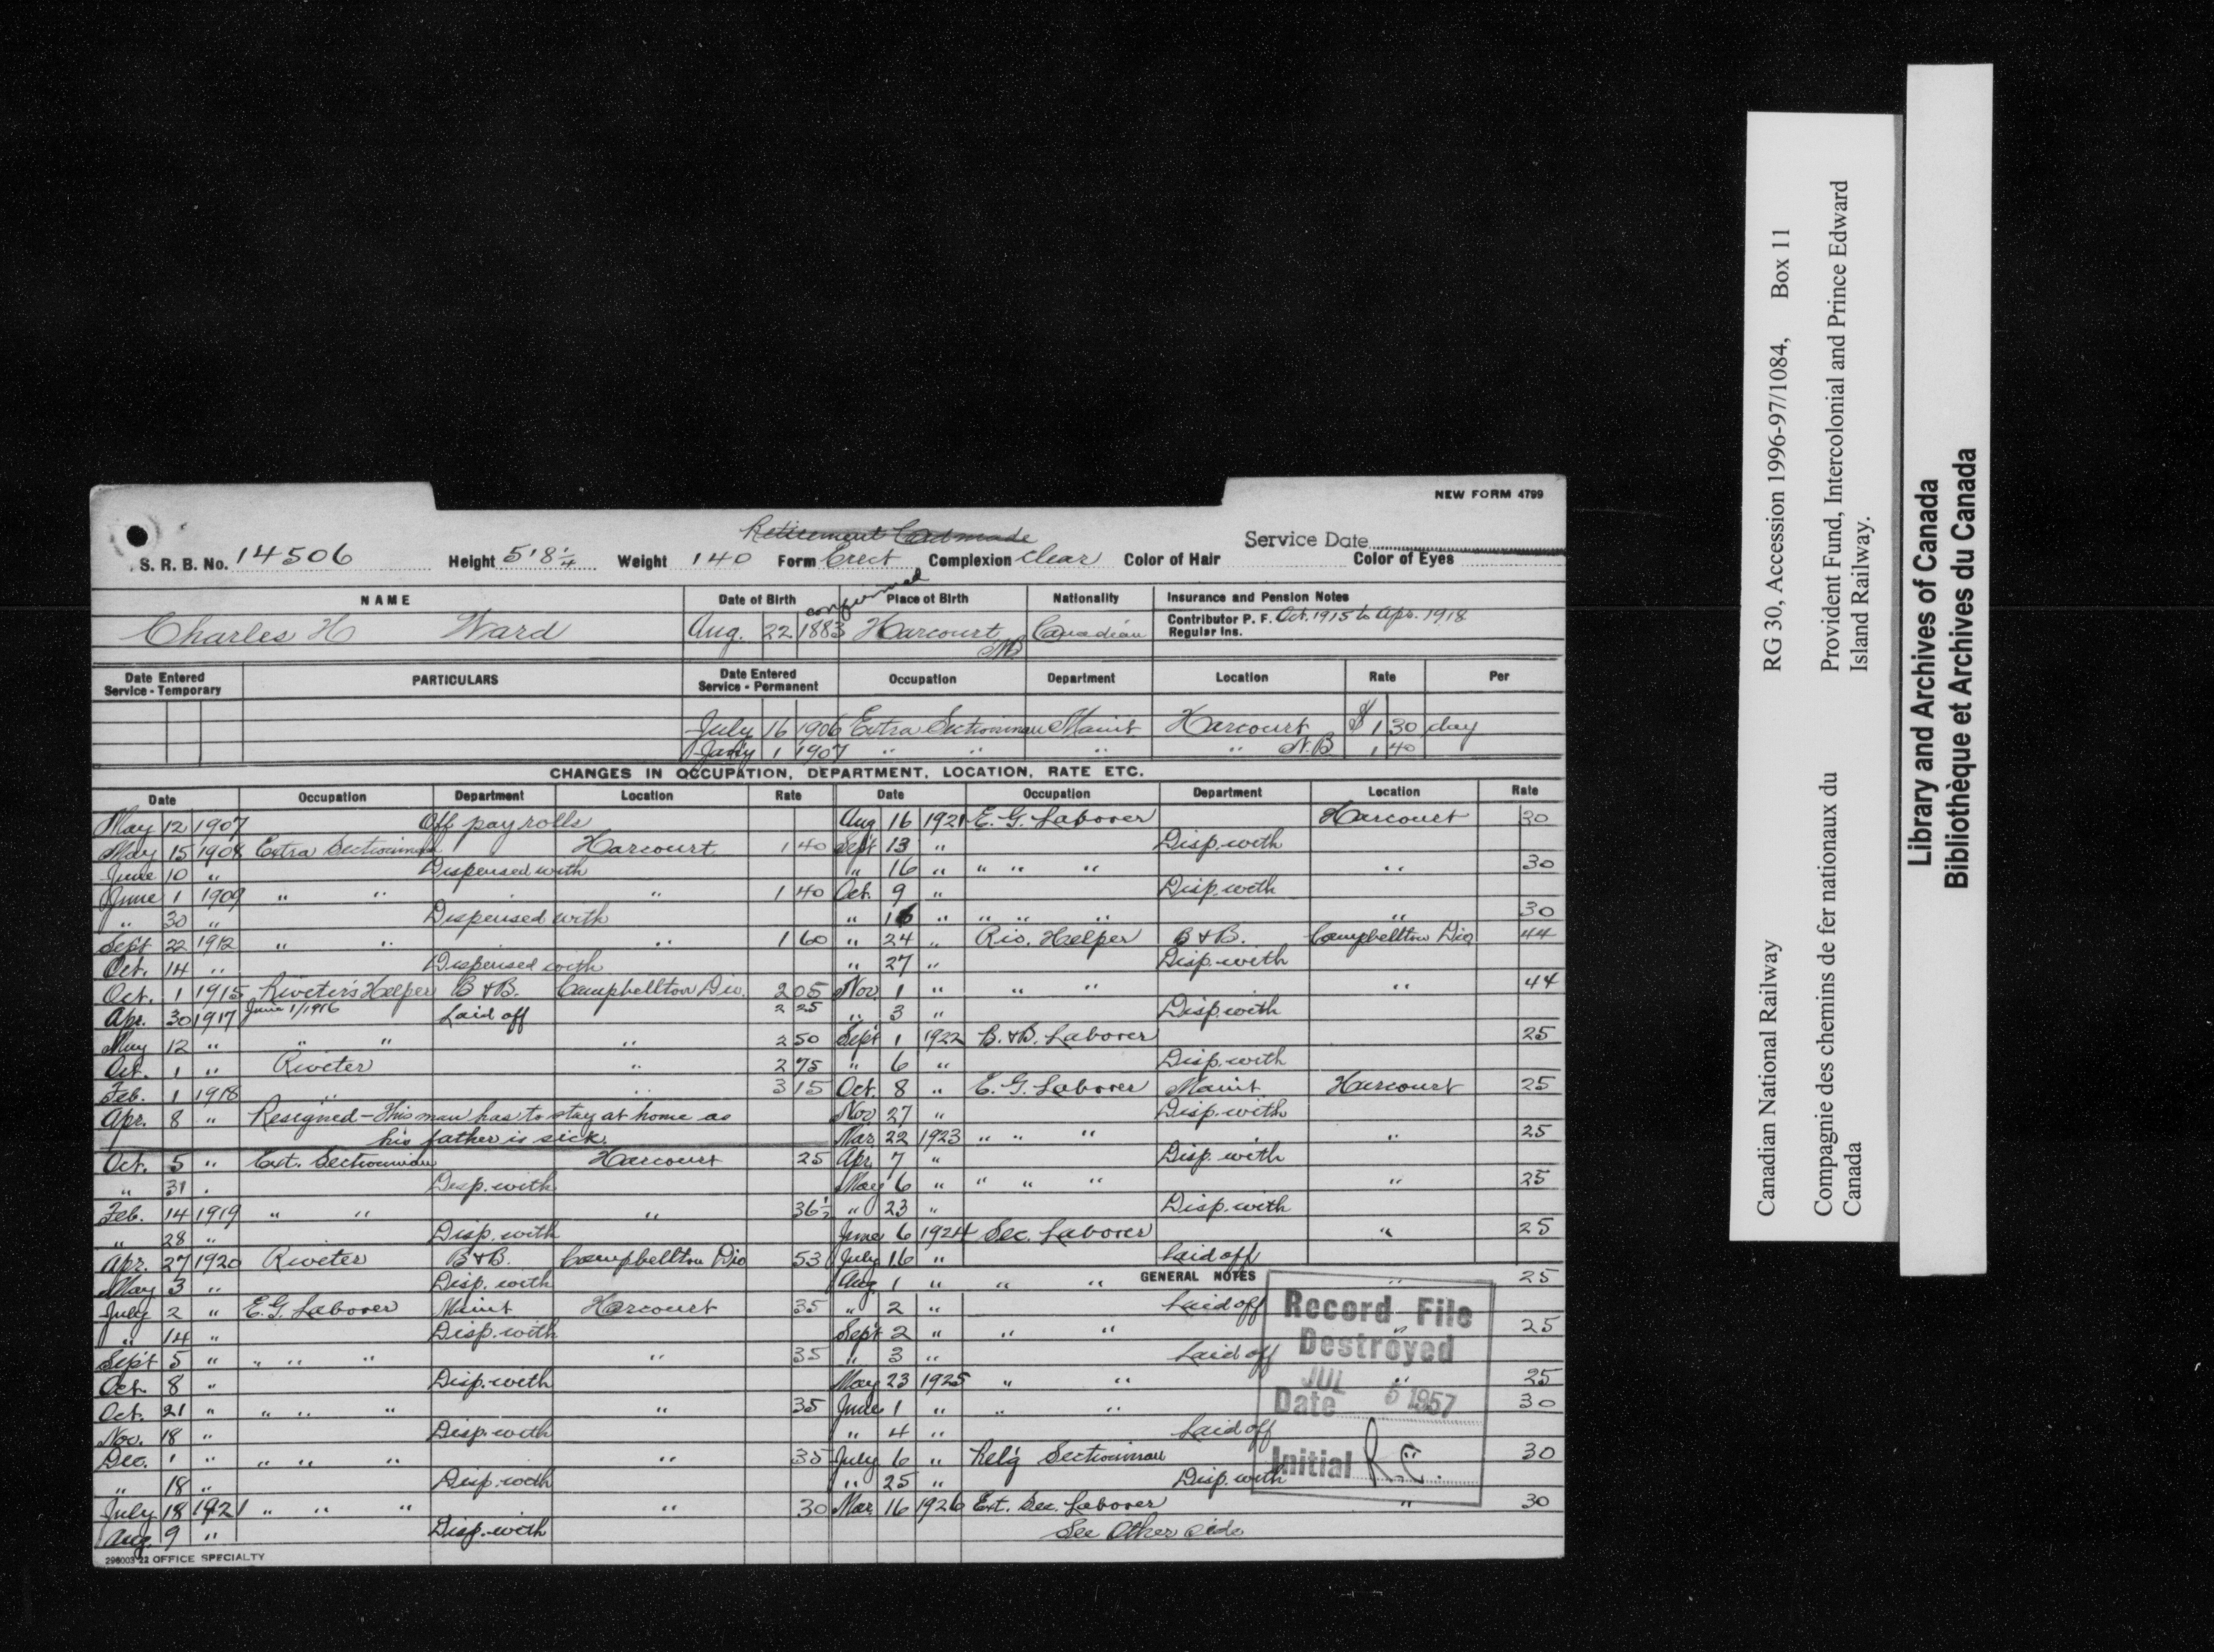 NEW FORM 4799
Retirement Card made
Service Date
S. R. B. No. 14506 Height 5'8¼ Weight 140 Form Erect Complexion Clear Color of Hair Color of Eyes
NAME Date of Birth confirmed Place of Birth Nationality Insurance and Pension Notes
Charles H Ward Aug. 22 1883 Harcourt NB Canadian Contributor P. F. Oct. 1915 to Apr. 1918
Regular Ins.
Date Entered Service - Temporary PARTICULARS Date Entered Service - Permanent Occupation Department Location Rate Per
July 16 1906 Extra Sectionman Maint Harcourt $ 1 30 day
Jan'y 1 1907 " " " " N.B 1 40
CHANGES IN OCCUPATION, DEPARTMENT, LOCATION, RATE ETC.
Date Occupation Department Location Rate Date Occupation Department Location Rate
May 12 1907 Off pay rolls
May 15 1908 Extra Sectionman Harcourt 1 40
June 10 " Dispensed with
June 1 1909 " " " 1 40
" 30 " Dispensed with
Sept 22 1912 " " " 1 60
Oct. 14 " Dispensed with
Oct. 1 1915 Riveter's Helper B & B. Campbellton Div. 2 05
June 1/1916 2 25
Apr. 30 1917 Laid off
May 12 " " " " 2 50
Oct. 1 " Riveter " 2 75
Feb. 1 1918 " " 3 15
Apr. 8 " Resigned - This man has to stay at home as
his father is sick.
Oct. 5 " Ext. Sectionman Harcourt 25
" 31 " Disp. with
Feb. 14 1919 " " " 36½
" 28 " Disp. with
Apr. 27 1920 Riveter B & B. Campbellton Div 53
May 3 " Disp. with
July 2 " E.G. Laborer Maint Harcourt 35
" 14 " Disp. with
Sept 5 " " " " " 35
Oct. 8 " Disp. with
Oct. 21 " " " " " 35
Nov. 18 " Disp. with
Dec. 1 " " " " " 35
" 18 " Disp. with
July 18 1921 " " " " 30
Aug. 9 " Disp. with
Aug 16 1921 E. G. Laborer Harcourt 30
Sept 13 " Disp. with
" 16 " " " " " 30
Oct. 9 " Disp. with
" 16 " " " " " 30
" 24 " Riv. Helper B & B. Campbellton Div 44
" 27 " Disp. with
Nov. 1 " " " " 44
" 3 " Disp with
Sept 1 1922 B. & B. Laborer 25
" 6 " Disp. with
Oct. 8 " E. G. Laborer Maint Harcourt 25
Nov. 27 " Disp. with
Mar. 22 1923 " " " " 25
Apr. 7 " Disp. with
May 6 " " " " " 25
" 23 " Disp. with
June 6 1924 Sec. Laborer " 25
July 16 " Laid off
GENERAL NOTES
Aug. 1 " " " " 25
" 2 " Laid off
Sept 2 " " " " 25
" 3 " Laid off
May 23 1925 " " " 25
June 1 " " " 30
" 4 " Laid off
July 6 " Rel'g Sectionman " 30
" 25 " Disp. with
Mar. 16 1926 Ext. Sec. Laborer " 30
See Other side
Record File
Destroyed
JUL 5 1957
Date
Initial
296003-22 OFFICE SPECIALTY
Canadian National Railway RG 30, Accession 1996-97/1084, Box 11
Compagnie des chemins de fer nationaux du Canada
Provident Fund, Intercolonial and Prince Edward
Island Railway.
Library and Archives of Canada
Bibliothèque et Archives du Canada